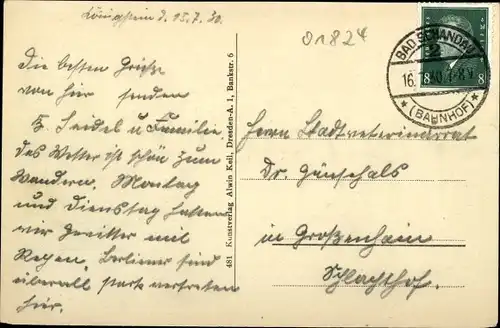 Königstein d. 15.7.30.
01824
Die besten Grüße
von hier senden
E. Seidel u. Familie.
das Wetter ist schön zum
Wandern. Montag
und Dienstag hatten
wir Gewitter mit
Regen. Berliner sind
überall stark vertreten
hier.
481 Kunstverlag Alwin Keil, Dresden-A. 1, Bankstr. 6
BAD SCHANDAU
2
16. 30. 7-8 V.
* (BAHNHOF) *
8 8
Herrn Stadtveterinärrat
Dr.
in Großenhain
Schlachthof.